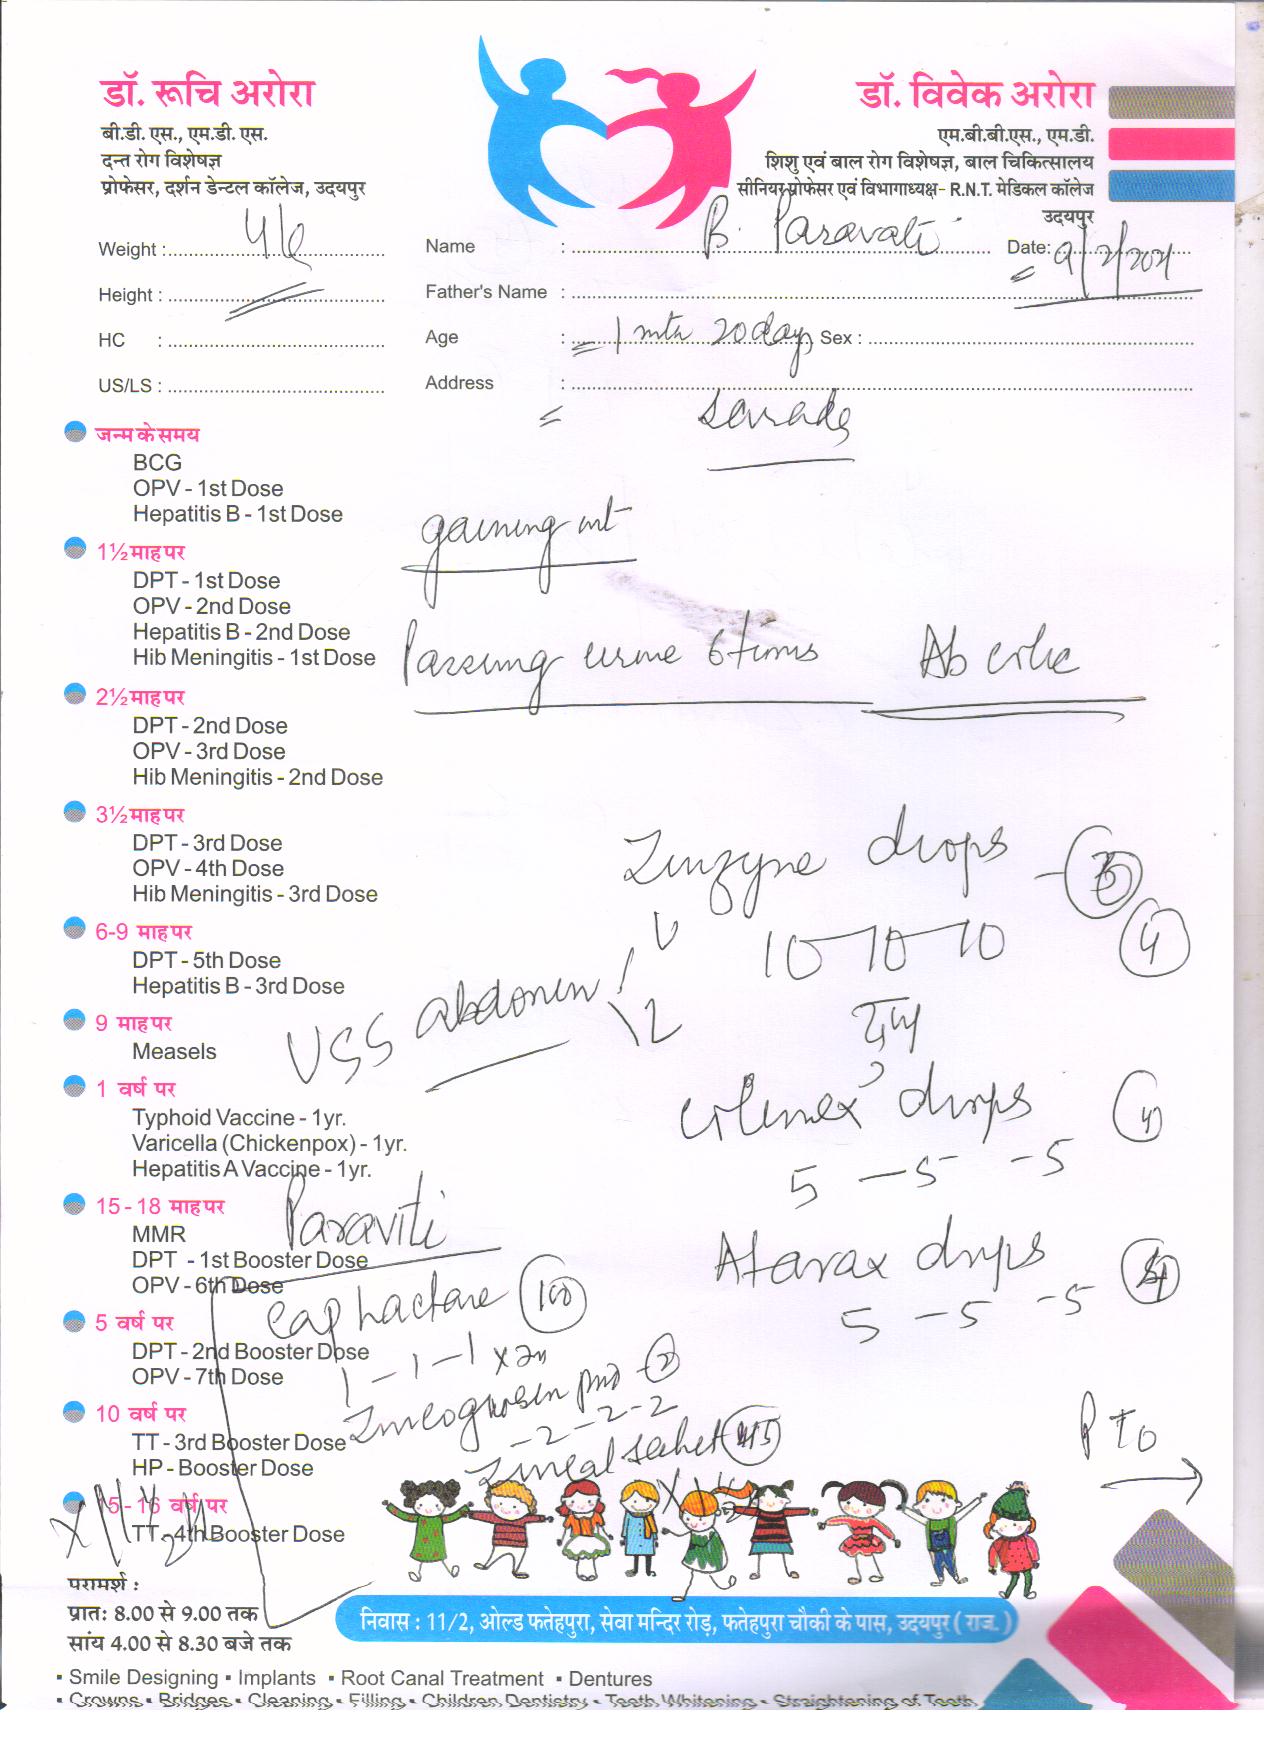 डॉ. रूचि अरोरा
बी.डी. एस., एम.डी. एस.
दन्त रोग विशेषज्ञ
प्रोफेसर, दर्शन डेन्टल कॉलेज, उदयपुर
डॉ. विवेक अरोरा
एम.बी.बी.एस., एम.डी.
शिशु एवं बाल रोग विशेषज्ञ, बाल चिकित्सालय
सीनियर प्रोफेसर एवं विभागाध्यक्ष- R.N.T. मेडिकल कॉलेज
उदयपुर
Weight : Name : B. Paravati Date: 9/2/2021
Height : Father's Name :
HC : Age : 1 mth 20 days Sex :
US/LS : Address :
जन्म के समय
BCG
OPV - 1st Dose
Hepatitis B - 1st Dose
gaining wt
1½ माह पर
DPT - 1st Dose
OPV - 2nd Dose
Hepatitis B - 2nd Dose
Hib Meningitis - 1st Dose
Passing urine 6 times Ab colic
2½ माह पर
DPT - 2nd Dose
OPV - 3rd Dose
Hib Meningitis - 2nd Dose
3½ माह पर
DPT - 3rd Dose
OPV - 4th Dose
Hib Meningitis - 3rd Dose
drops
10 - 10 - 10 4
6-9 माह पर
DPT - 5th Dose
Hepatitis B - 3rd Dose
USS abdomen
9 माह पर
Measels
1 वर्ष पर
Typhoid Vaccine - 1yr.
Varicella (Chickenpox) - 1yr.
Hepatitis A Vaccine - 1yr.
drops
5 - 5 - 5
15 - 18 माह पर
MMR
DPT - 1st Booster Dose
OPV - 6th Dose
Atarax drops
5 - 5 - 5
Paraviti
Cap Lactare 100
1 - 1 - 1
5 वर्ष पर
DPT - 2nd Booster Dose
OPV - 7th Dose
2 - 2 - 2
sachet
10 वर्ष पर
TT - 3rd Booster Dose
HP - Booster Dose
PTO
15 - 16 वर्ष पर
TT - 4th Booster Dose
परामर्श :
प्रातः 8.00 से 9.00 तक
सांय 4.00 से 8.30 बजे तक
निवास : 11/2, ओल्ड फतेहपुरा, सेवा मन्दिर रोड़, फतेहपुरा चौकी के पास, उदयपुर ( राज. )
▪ Smile Designing ▪ Implants ▪ Root Canal Treatment ▪ Dentures
▪ Crowns ▪ Bridges ▪ Cleaning ▪ Filling ▪ Children Dentistry ▪ Teeth Whitening ▪ Straightening of Teeth